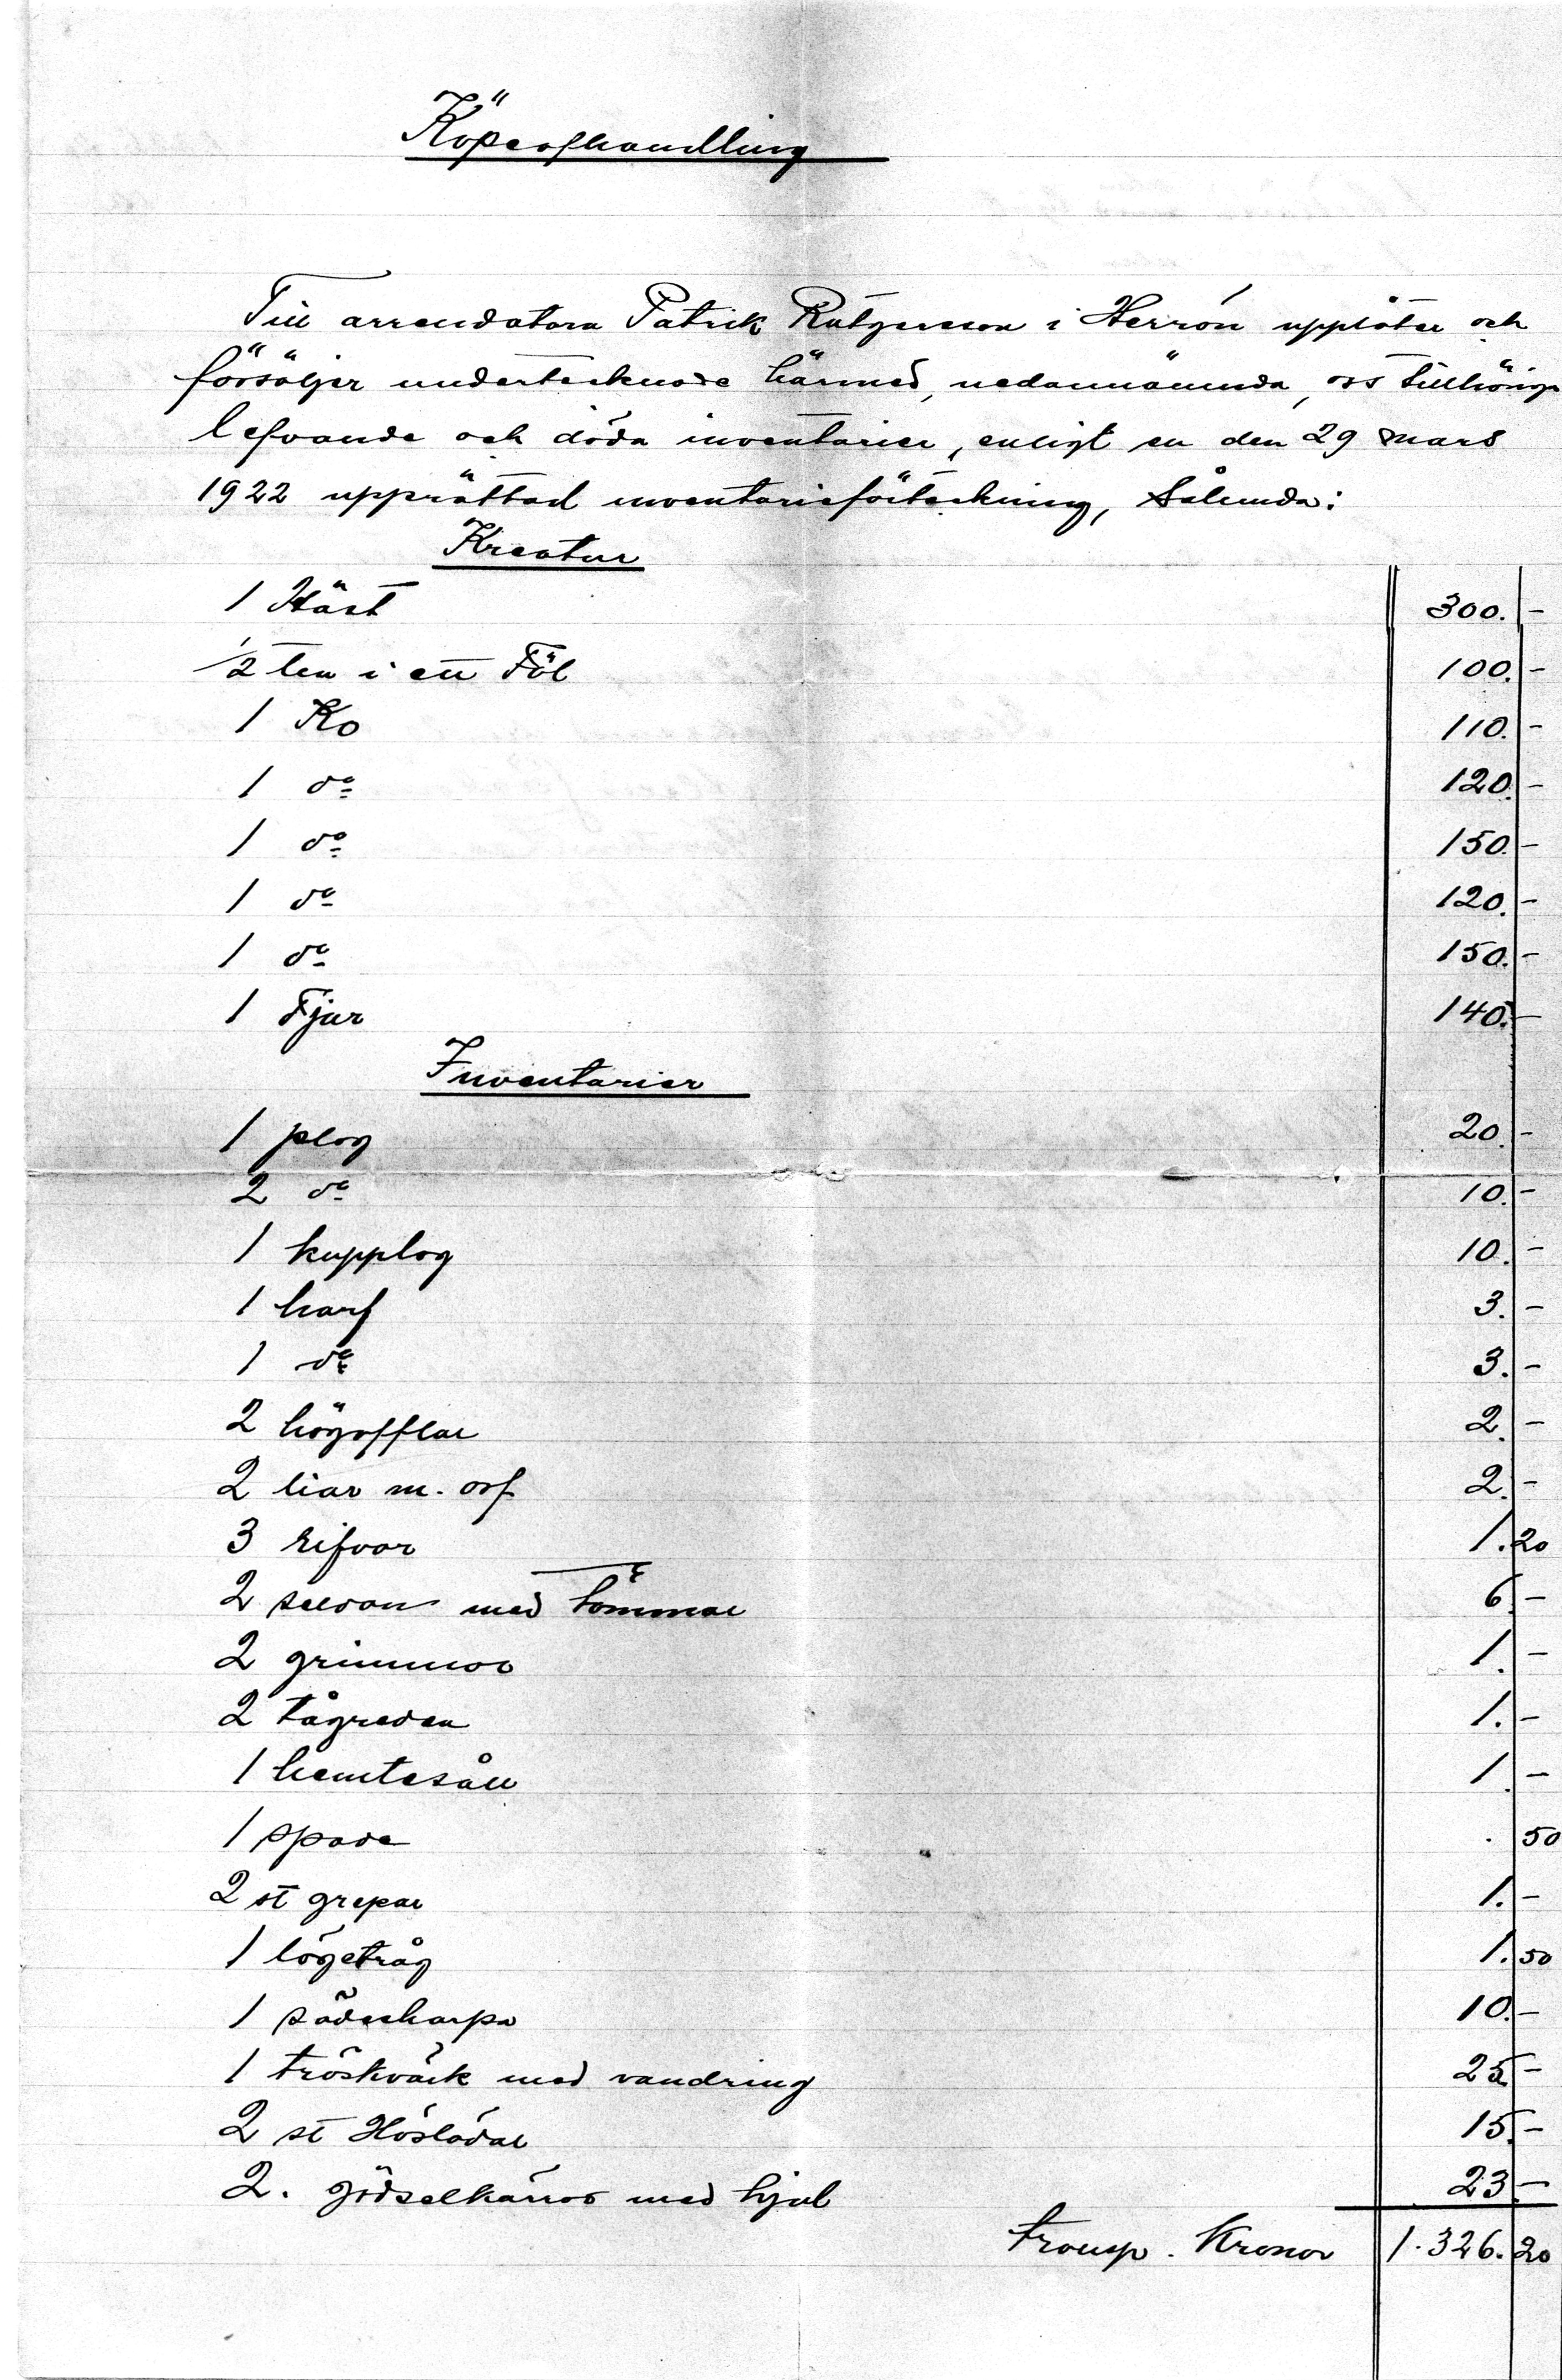 Köpeafhandling
Till arrendatorn Patrik Rutgersson i Herrön upplåter och
försäljer undertecknade härmed, nedannämnda, oss tillhöriga
lefvande och döda inventarier, enligt en den 29 mars
1922 upprättad inventarieförteckning, Sålunda:
Kreatur
1 Häst 300. -
1/2 ten i ett Föl 100. -
1 Ko 110. -
1 do 120. -
1 do 150. -
1 do 120. -
1 do 150. -
1 Tjur 140. -
Inventarier
1 plog 20. -
2 do 10. -
1 kupplog 10. -
1 harf 3. -
1 do 3. -
2 högafflar 2. -
2 liar m. orf 2. -
3 rifvor 1. 20
2 seldon med tömmar 6. -
2 grimmor 1. -
2 tågreden 1. -
1 hemtesåll 1. -
1 spade . 50
2 st grepar 1. -
1 lögetråg 1. 50
1 sädesharpa 10. -
1 tröskvärk med vandring 25. -
2 st Höslådar 15. -
2. gödselkärror med hjul 23. -
transp. Kronor 1.326. 20